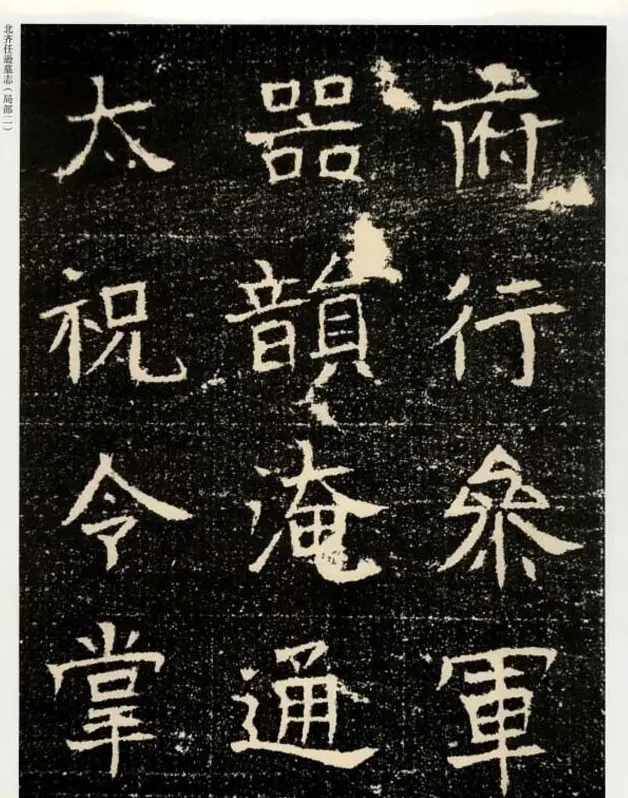 北齐任逊墓志（局部二）
府行叅軍
器韻淹通
太祝令掌